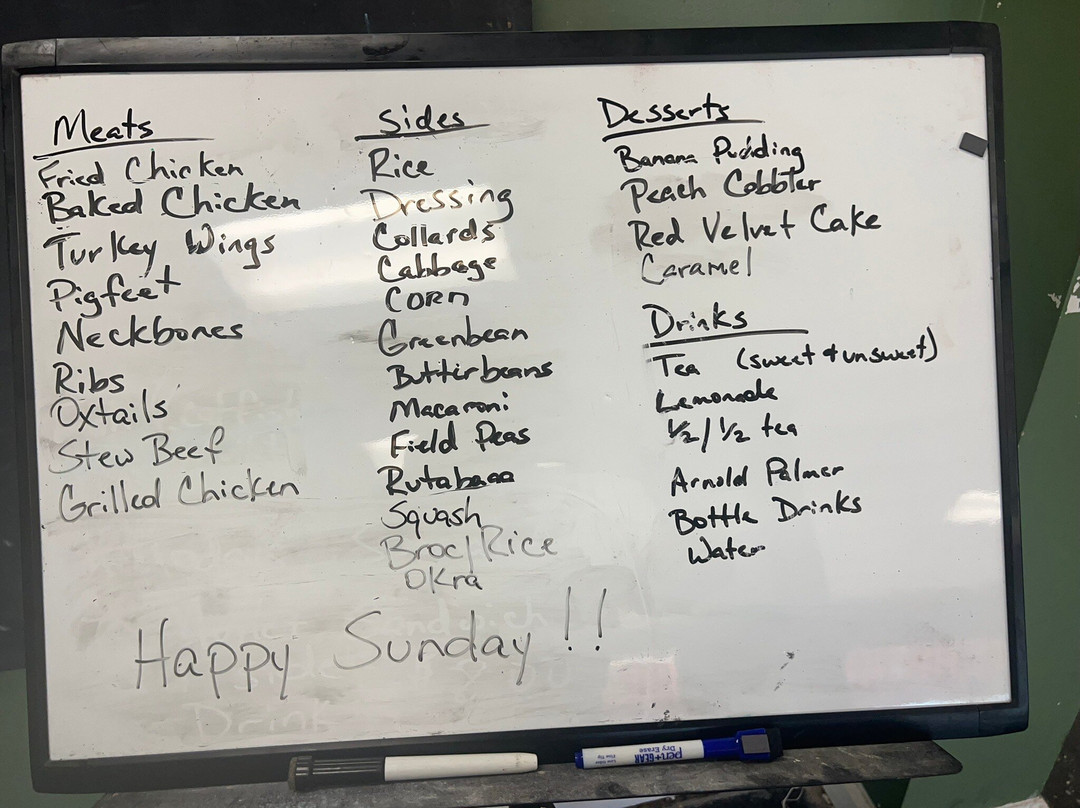 Meats
Fried Chicken
Baked Chicken
Turkey Wings
Pigfeet
Neckbones
Ribs
Oxtails
Stew Beef
Grilled Chicken
Sides
Rice
Dressing
Collards
Cabbage
CORN
Greenbean
Butterbeans
Macaroni
Field Peas
Rutabaga
Squash
Broc/Rice
Okra
Desserts
Banana Pudding
Peach Cobbler
Red Velvet Cake
Caramel
Drinks
Tea (sweet & unsweet)
Lemonade
1/2 / 1/2 tea
Arnold Palmer
Bottle Drinks
Water
Happy Sunday!!
Drink
pen+GEAR
Dry Erase